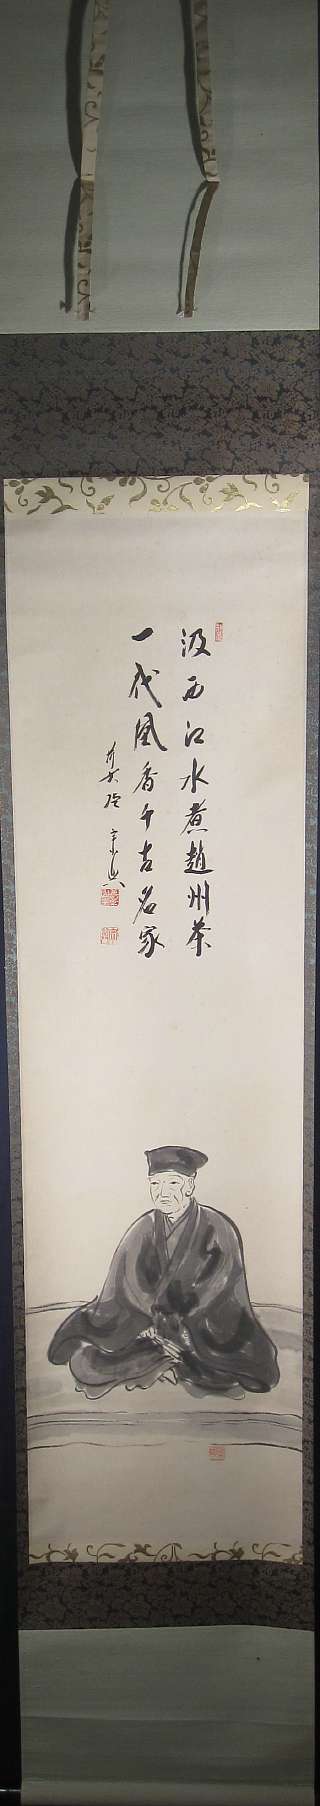 汲西江水煮趙州茶
一代風香千古名家